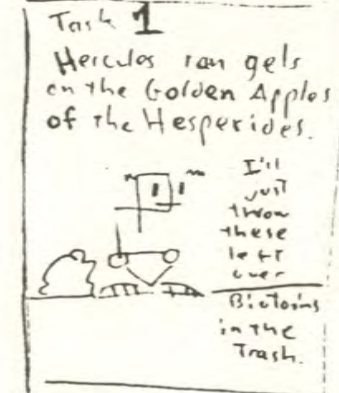 Task 1
Hercules ran gels
on the Golden Apples
of the Hesperides.
I'll
just
throw
these
left
over
in the
Trash.